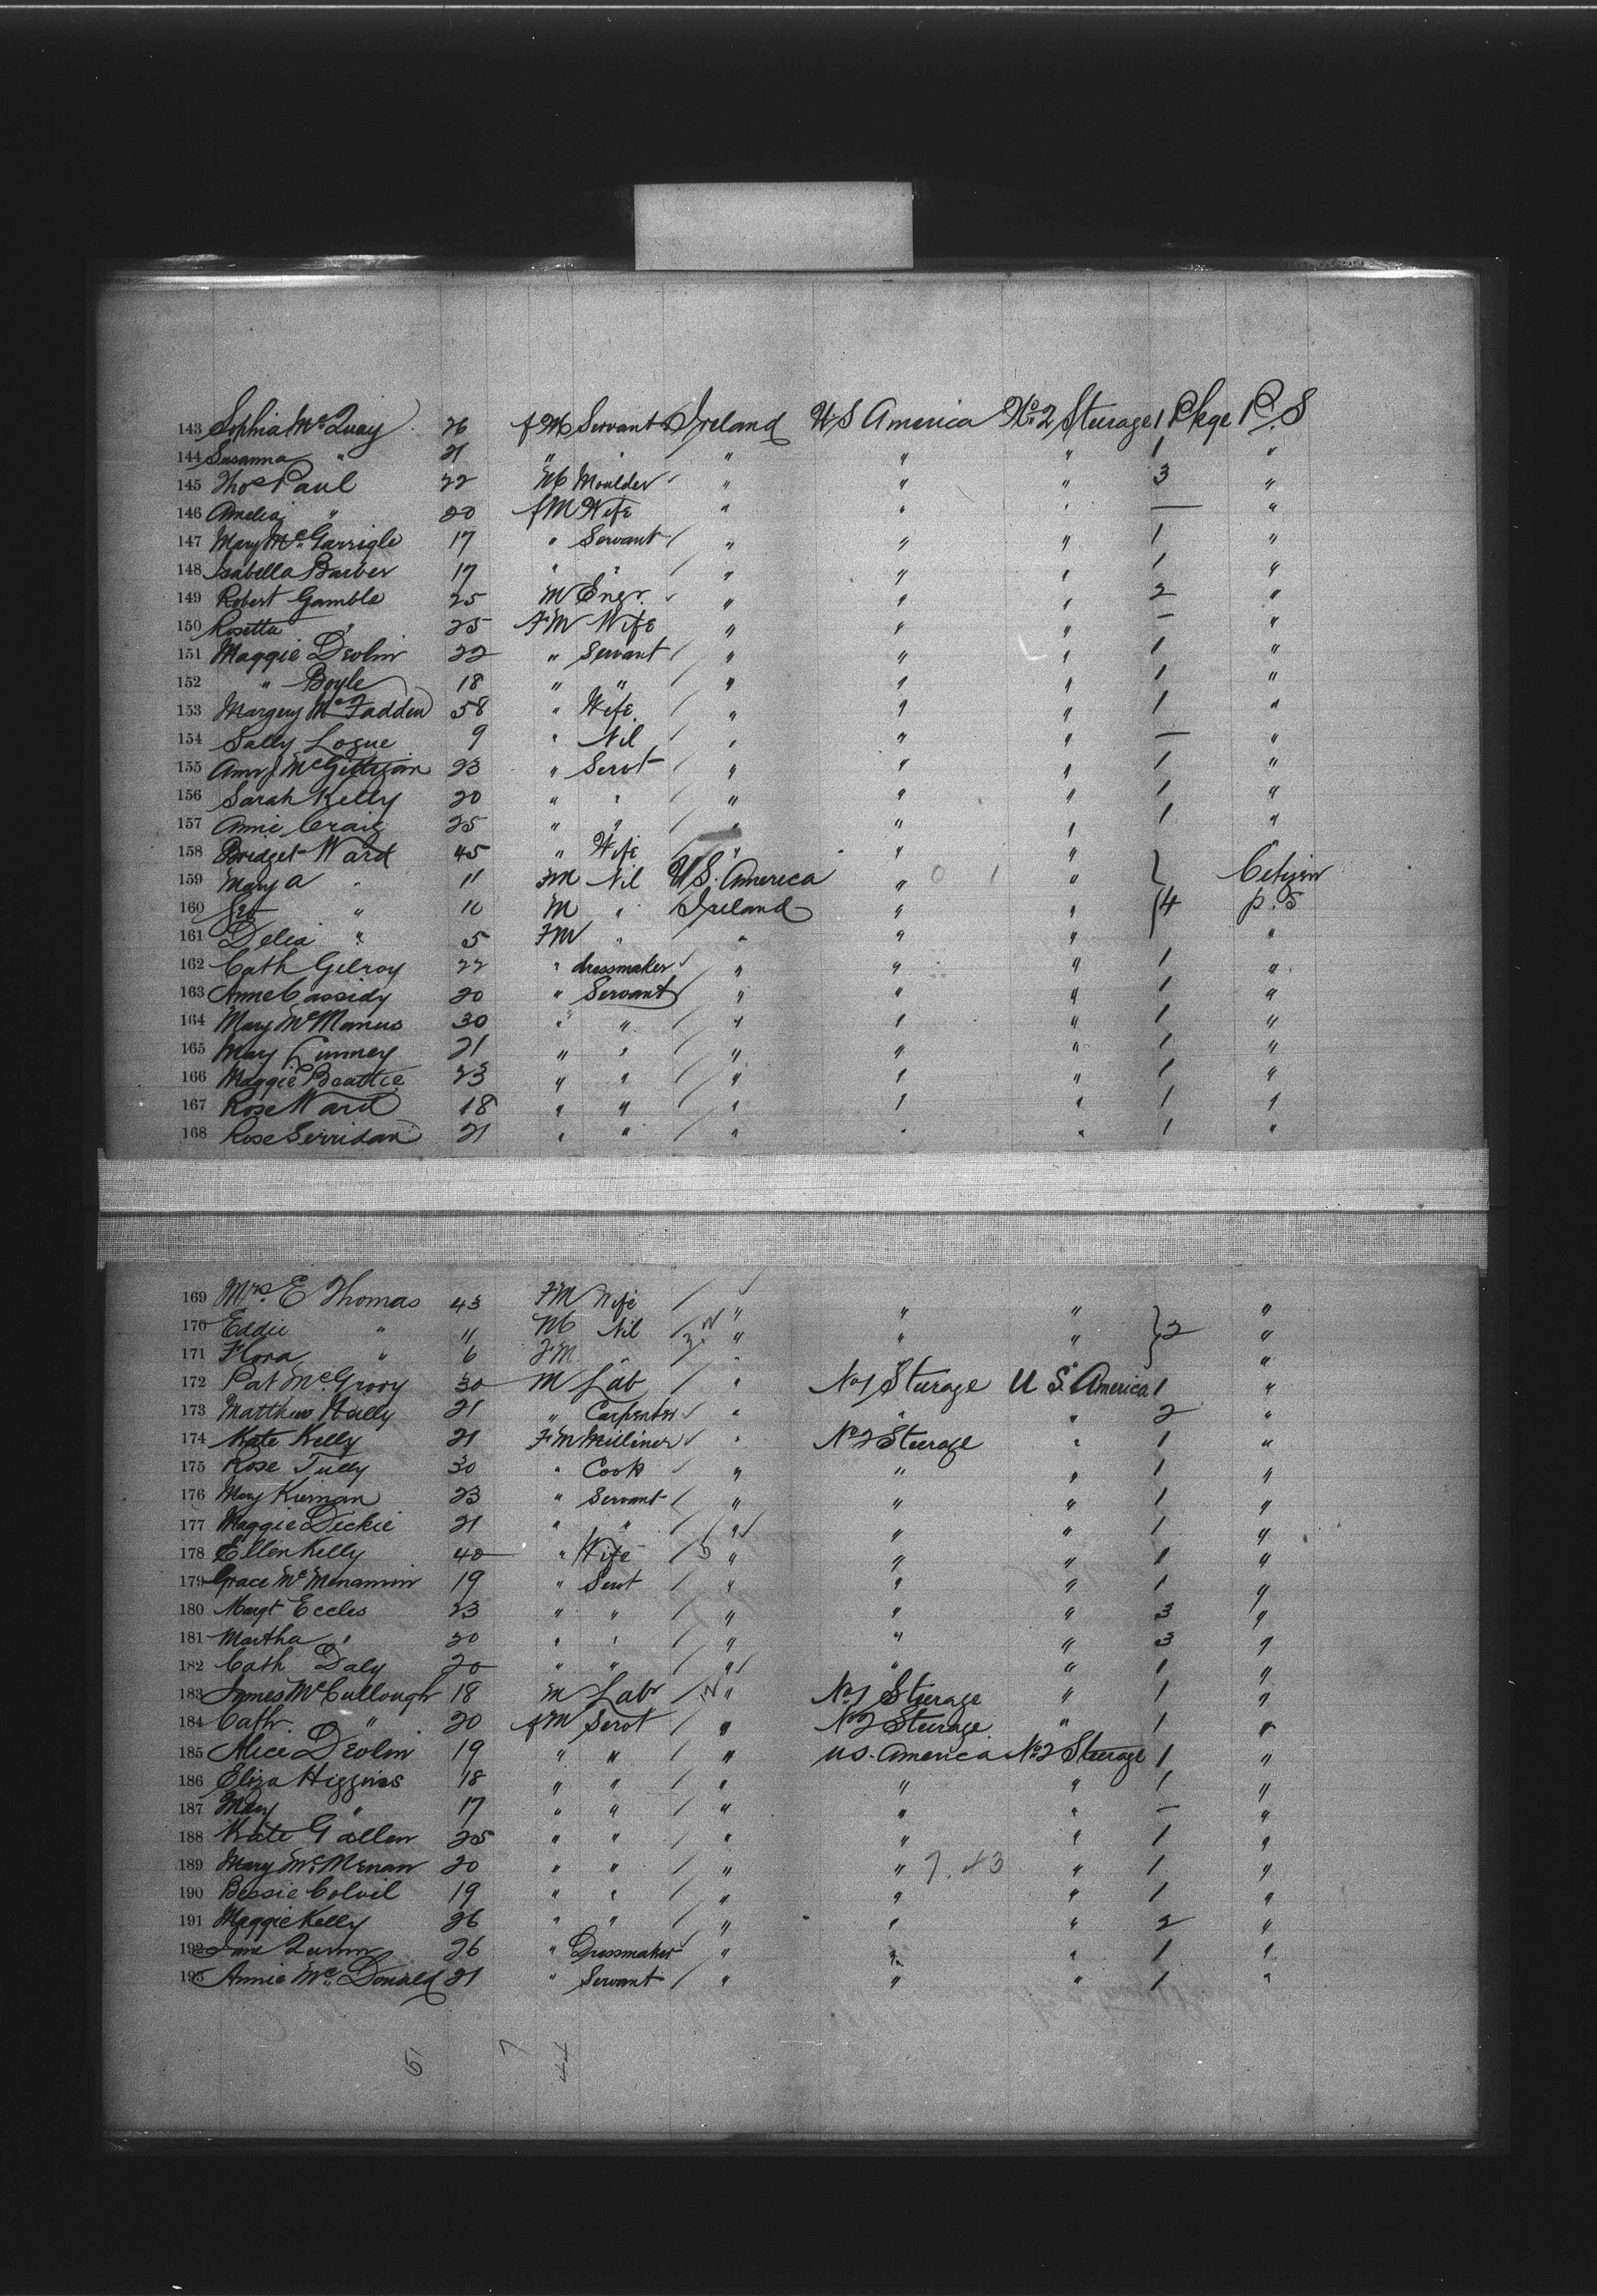 143 Sophia McQuay 26 f M Servant Ireland U S America No 2 Steerage 1 Pkge P.S
144 Susanna " 21 " " " " " 1 "
145 Thos Paul 22 M Moulder " " " 3 "
146 Amelia " 20 f M Wife " " " — "
147 Mary McGarrigle 17 " Servant " " " 1 "
148 Isabella Barber 17 " " " " " 1 "
149 Robert Gamble 25 M Engr. " " " 2 "
150 Rosetta " 25 F M Wife " " " — "
151 Maggie Devlin 22 " Servant " " " 1 "
152 " Boyle 18 " " " " " 1 "
153 Margery McFadden 58 " Wife " " " 1 "
154 Sally Logue 9 " Nil " " " — "
155 Ann J McGettigan 23 " Servt " " " 1 "
156 Sarah Kelly 20 " " " " " 1 "
157 Annie Craig 25 " " " " " 1 "
158 Bridget Ward 45 " Wife " " "
159 Mary A " 11 F M Nil U S. America " 0 1 " Citizen
160 " 10 M " Ireland " " 4 p. S
161 Delia " 5 F M " " " " "
162 Cath Gilroy 22 " dressmaker " " " 1 "
163 Anne Cassidy 20 " Servant " " " 1 "
164 Mary McManus 30 " " " " " 1 "
165 Mary Lunney 21 " " " " " 1 "
166 Maggie Beattie 23 " " " " " 1 "
167 Rose Ward 18 " " " " " 1 "
168 Rose Serridan 21 " " " " " 1 "
169 Mrs. E Thomas 43 F M Wife " " " "
170 Eddie " 11 M Nil " " " 2 "
171 Flora " 6 F M " " "
172 Pat McGrory 30 M Lab " No 1 Steerage U S. America 1 "
173 Matthew Nally 21 " Carpenter " " " 2 "
174 Kate Kelly 21 F M Milliner " No 2 Steerage " 1 "
175 Rose Tully 30 " Cook " " " 1 "
176 Mary Kiernan 23 " Servant " " " 1 "
177 Maggie Dickie 21 " " " " " 1 "
178 Ellen Kelly 40 " Wife " " " 1 "
179 Grace McMenamin 19 " Servt " " " 1 "
180 Margt Eccles 23 " " " " " 3 "
181 Martha " 20 " " " " " 3 "
182 Cath Daly 20 " " " " " 1 "
183 James McCullough 18 M Labr " No 1 Steerage " 1 "
184 Cath. " 20 f M Servt " No 2 Steerage " 1 "
185 Alice Devlin 19 " " " U S. America No 2 Steerage 1 "
186 Eliza Higgins 18 " " " " " 1 "
187 Mary " 17 " " " " " — "
188 Kate Gallen 25 " " " " " 1 "
189 Mary McMenam 20 " " " " 7. 43 " 1 "
190 Bessie Colvil 19 " " " " " 1 "
191 Maggie Kelly 26 " " " " " 2 "
192 Jane Quinn 26 " Dressmaker " " " 1 "
193 Annie McDonald 21 " Servant " " " 1 "
7 44